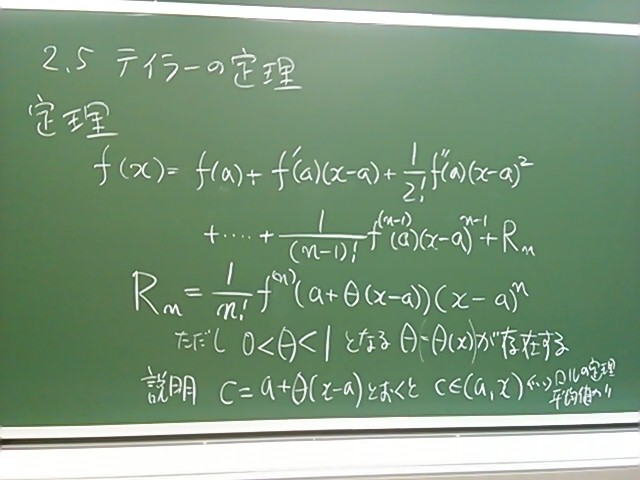 2.5 テイラーの定理
定理
f(x) = f(a) + f'(a)(x-a) + 1/2! f''(a)(x-a)²
+ ‥‥ + 1/(n-1)! f⁽ⁿ⁻¹⁾(a)(x-a)ⁿ⁻¹ + Rₙ
Rₙ = 1/n! f⁽ⁿ⁾(a+θ(x-a))(x-a)ⁿ
ただし 0<θ<1 となる θ=θ(x)が存在する
説明 C = a+θ(x-a)とおくと c∈(a,x) ロルの定理
平均値の 〃